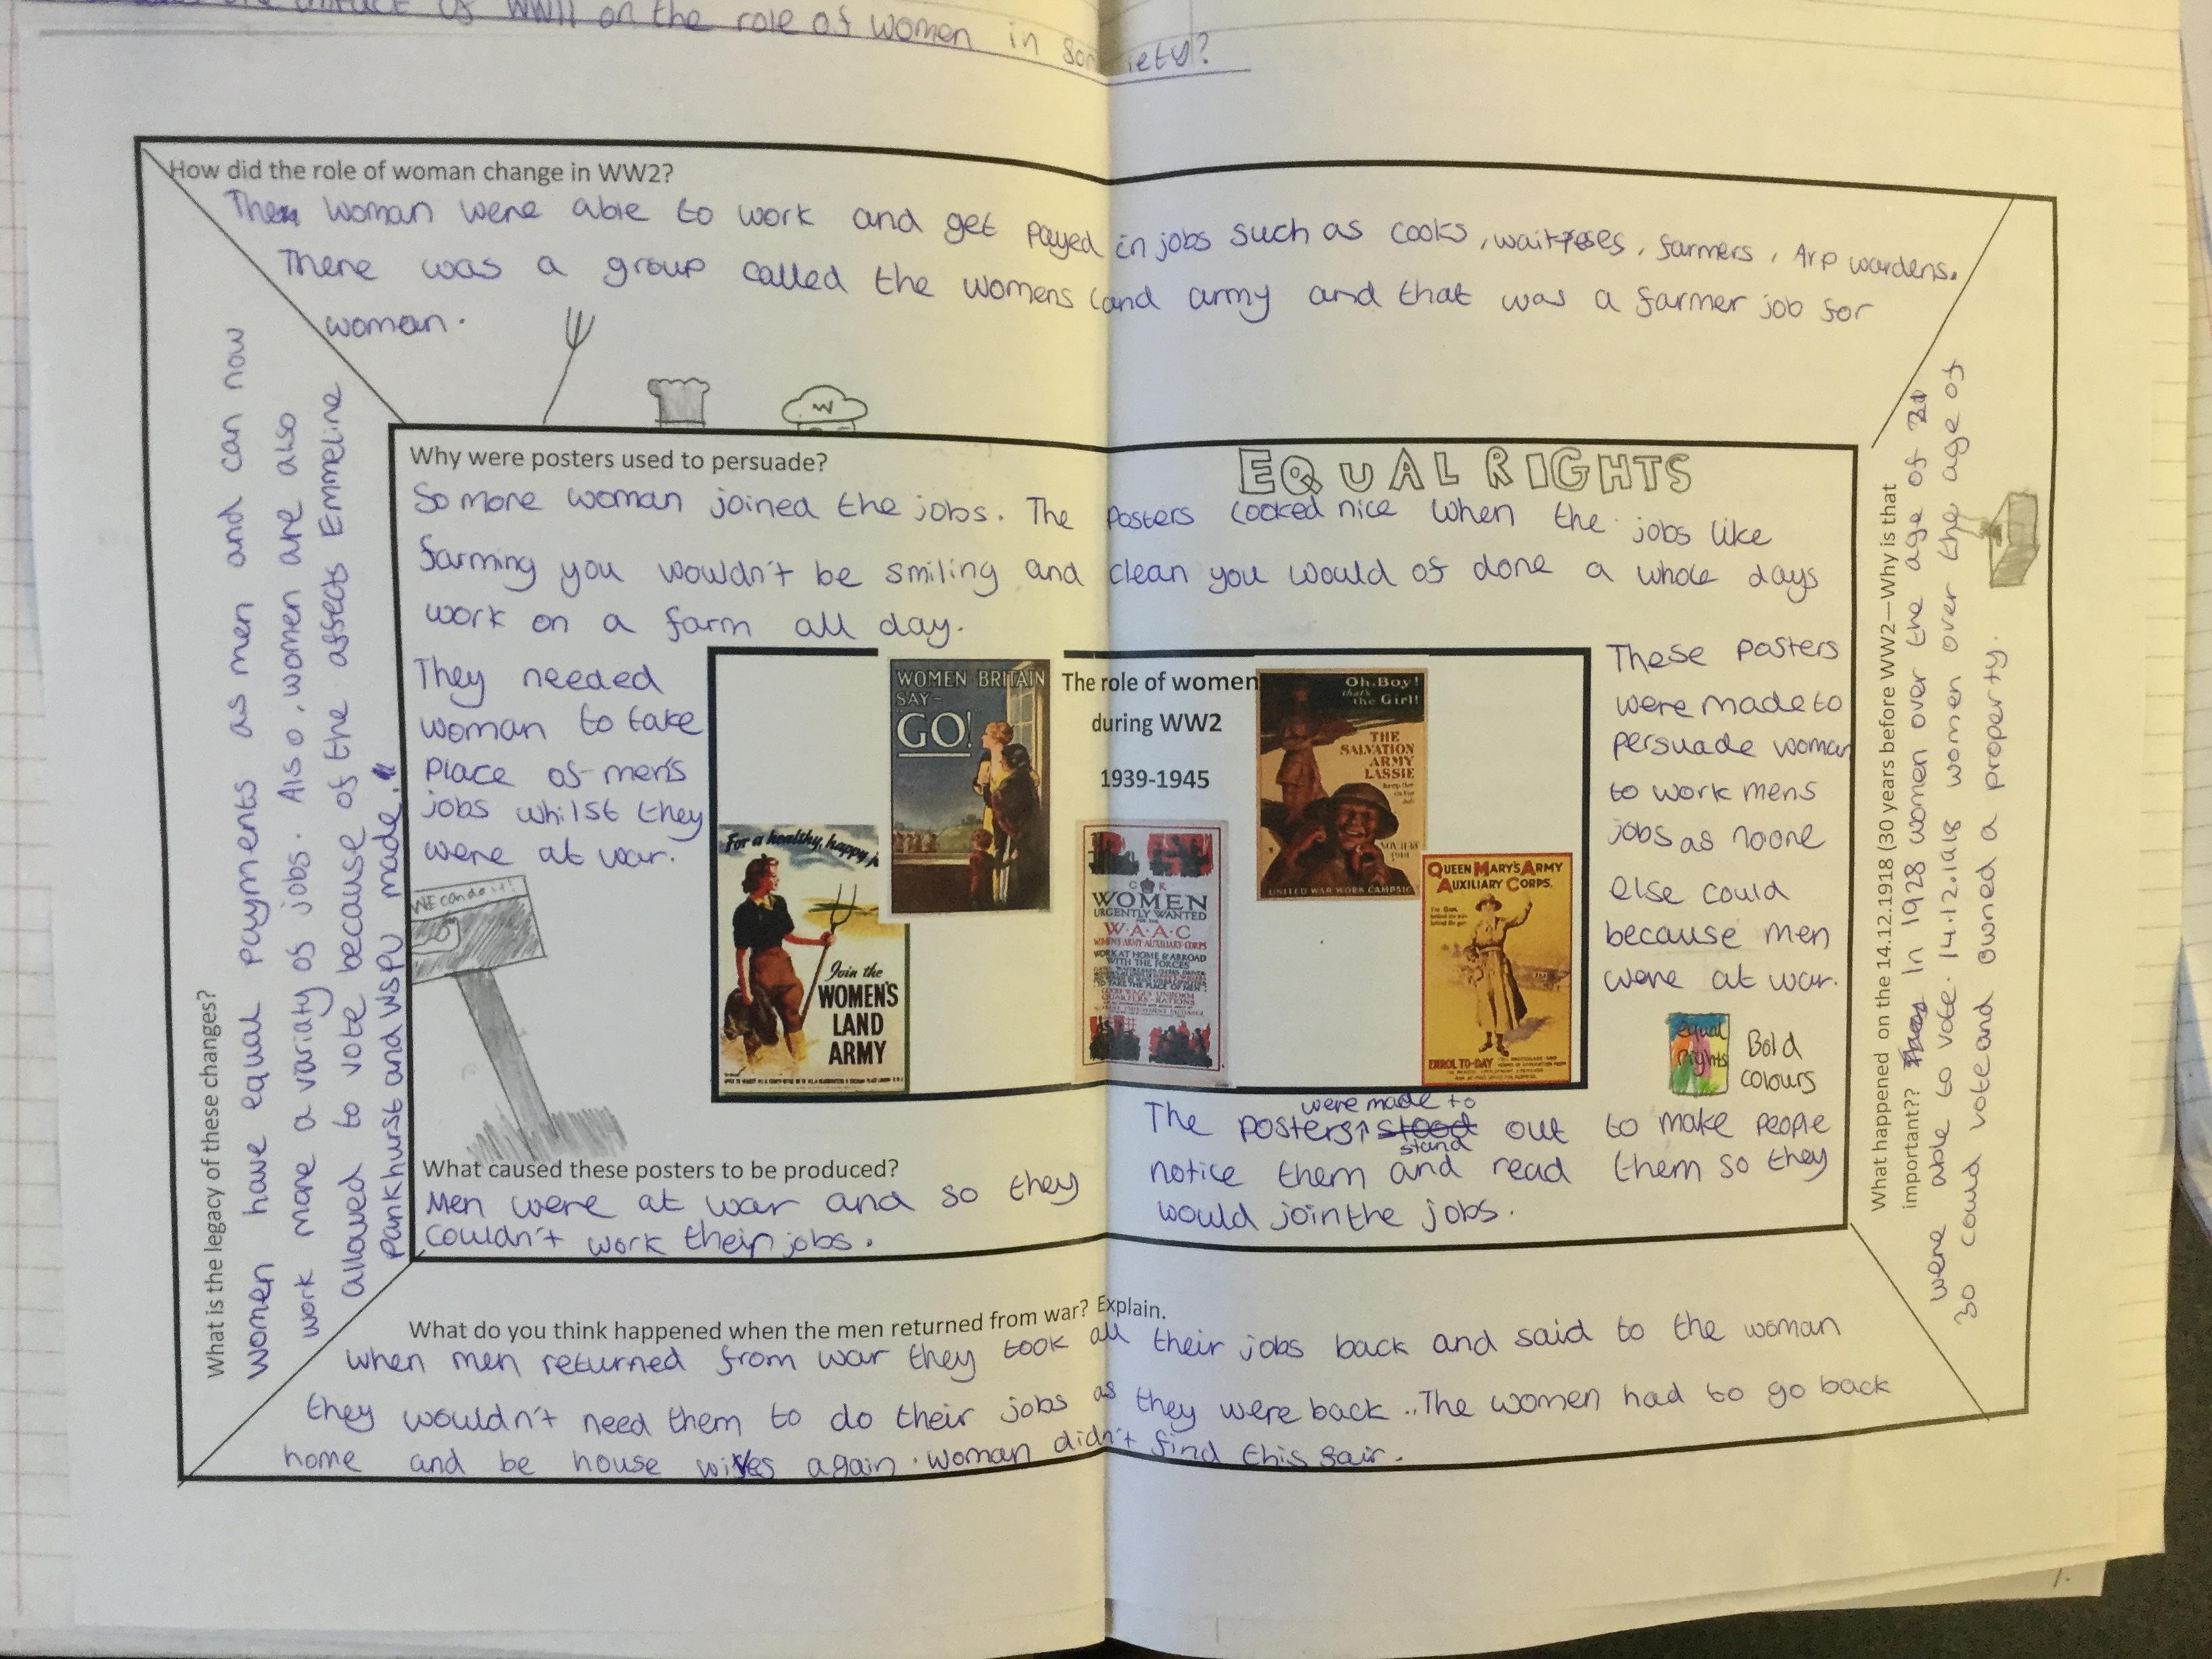 impact of WWII on the role of women in society?
How did the role of woman change in WW2?
Then woman were able to work and get payed in jobs such as cooks, waitresses, farmers, Arp wardens.
There was a group called the womens land army and that was a farmer job for
woman.
W
Why were posters used to persuade?
EQUAL RIGHTS
So more woman joined the jobs. The posters looked nice when the jobs like
farming you wouldn't be smiling and clean you would of done a whole days
work on a farm all day.
They needed
woman to take
place of men's
jobs whilst they
were at war.
WE can do it!
The role of women
during WW2
1939-1945
WOMEN BRITAIN
SAY-
"GO!"
For a healthy, happy j
Join the
WOMEN'S
LAND
ARMY
G R
WOMEN
URGENTLY WANTED
FOR THE
W·A·A·C
WOMEN'S ARMY AUXILIARY CORPS
WORK AT HOME & ABROAD
WITH THE FORCES
TO TAKE THE PLACE OF MEN
QUARTERS · RATIONS
Oh, Boy!
that's the Girl!
THE
SALVATION
ARMY
LASSIE
NOV. 11-18
1918
UNITED WAR WORK CAMPAIG
QUEEN MARY'S ARMY
AUXILIARY CORPS.
ENROL TO-DAY
These posters
were made to
persuade woman
to work mens
jobs as no one
else could
because men
were at war.
equal
rights
Bold
colours
The posters were made to stood stand out to make people
notice them and read them so they
would join the jobs.
What caused these posters to be produced?
Men were at war and so they
couldn't work their jobs.
What do you think happened when the men returned from war? Explain.
when men returned from war they took all their jobs back and said to the woman
they wouldn't need them to do their jobs as they were back .. The women had to go back
home and be house wives again. woman didn't find this fair.
What is the legacy of these changes?
Women have equal payments as men and can now
work more a variaty of jobs. Also, women are also
allowed to vote because of the affects Emmeline
Pankhurst and WSPU made."
What happened on the 14.12.1918 (30 years before WW2—Why is that
important?? In 1928 women over the age of 21
were able to vote. 14.12.1918 women over the age of
30 could vote and owned a property.